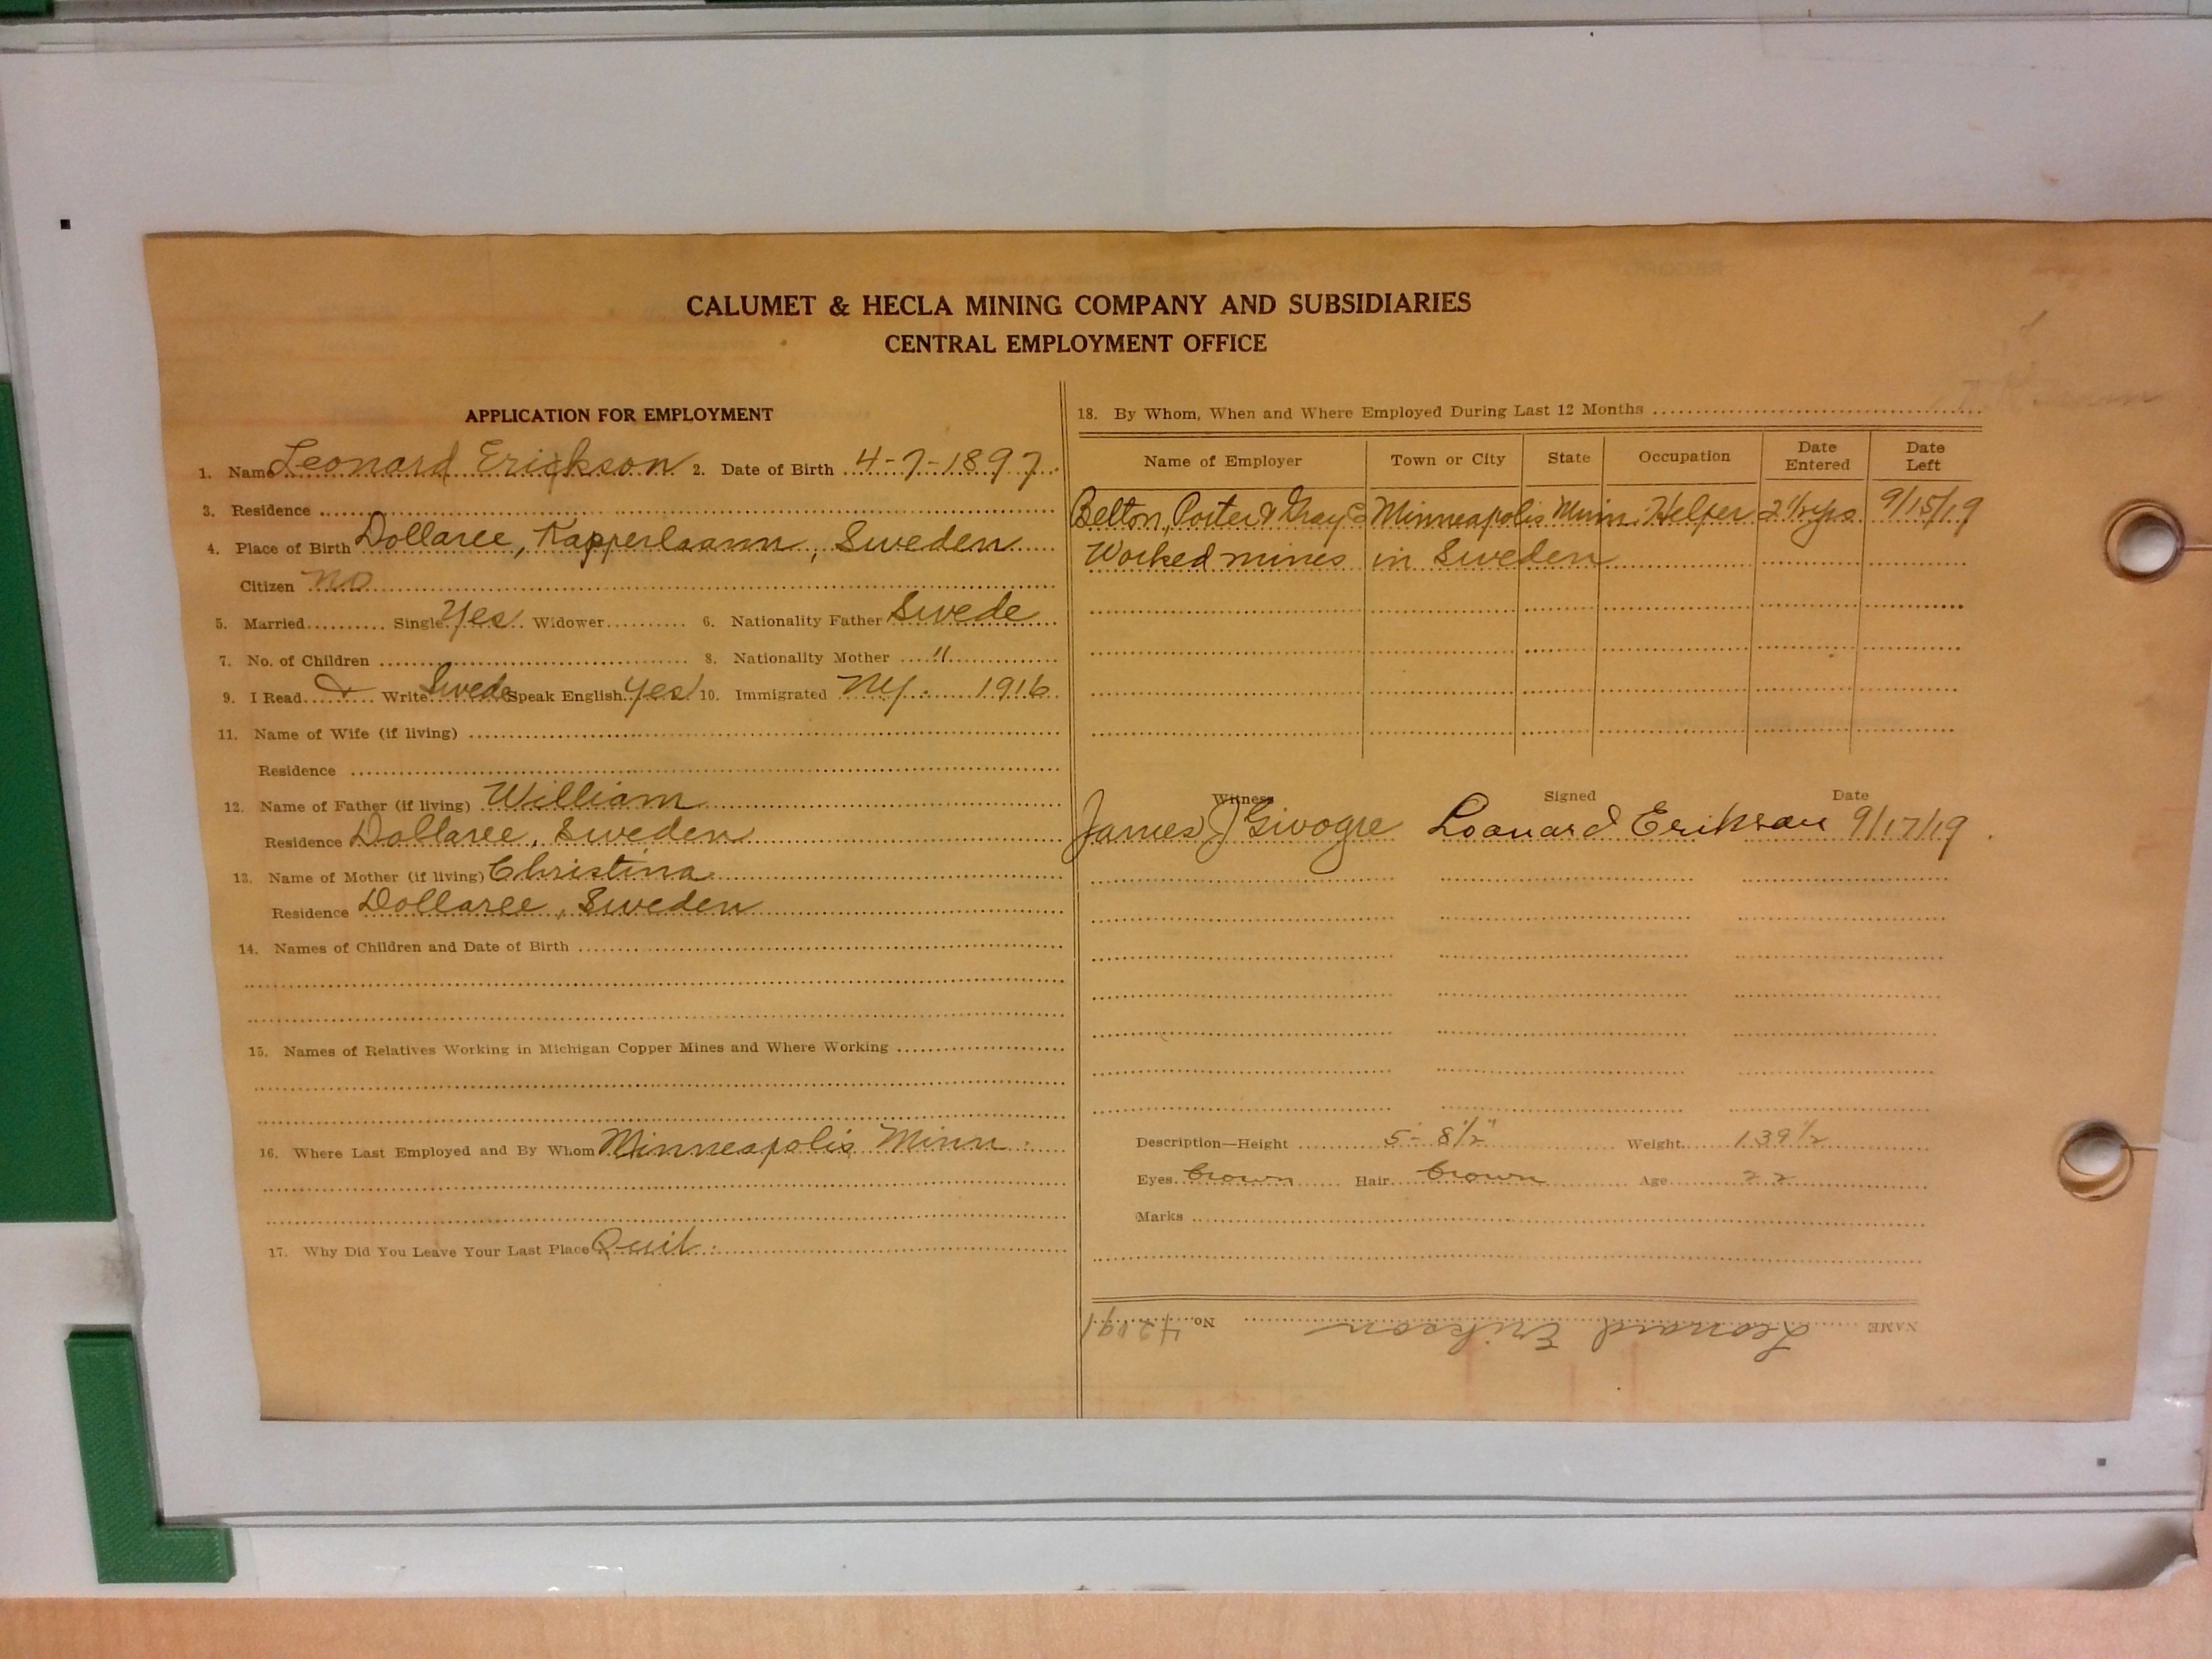 CALUMET & HECLA MINING COMPANY AND SUBSIDIARIES
CENTRAL EMPLOYMENT OFFICE
APPLICATION FOR EMPLOYMENT
1. Name Leonard Erickson 2. Date of Birth 4-7-1897
3. Residence
4. Place of Birth Dollaree, Kapperlaann, Sweden
Citizen no
5. Married Single Yes Widower 6. Nationality Father Swede
7. No. of Children 8. Nationality Mother "
9. I Read & Write Swede Speak English Yes 10. Immigrated NY. 1916
11. Name of Wife (if living)
Residence
12. Name of Father (if living) William
Residence Dollaree, Sweden
13. Name of Mother (if living) Christina
Residence Dollaree, Sweden
14. Names of Children and Date of Birth
15. Names of Relatives Working in Michigan Copper Mines and Where Working
16. Where Last Employed and By Whom Minneapolis Minn.
17. Why Did You Leave Your Last Place Quit.
18. By Whom, When and Where Employed During Last 12 Months
Name of Employer Town or City State Occupation Date Entered Date Left
Belton, Porter & Gray Co Minneapolis Minn. Helper 2 1/2 yrs 9/15/19
Worked mines in Sweden
Witness Signed Date
James J Loanard Erikson 9/17/19
Description—Height 5-8½" Weight 139½
Eyes brown Hair brown Age 22
Marks
NAME Leonard Erikson No. 42091